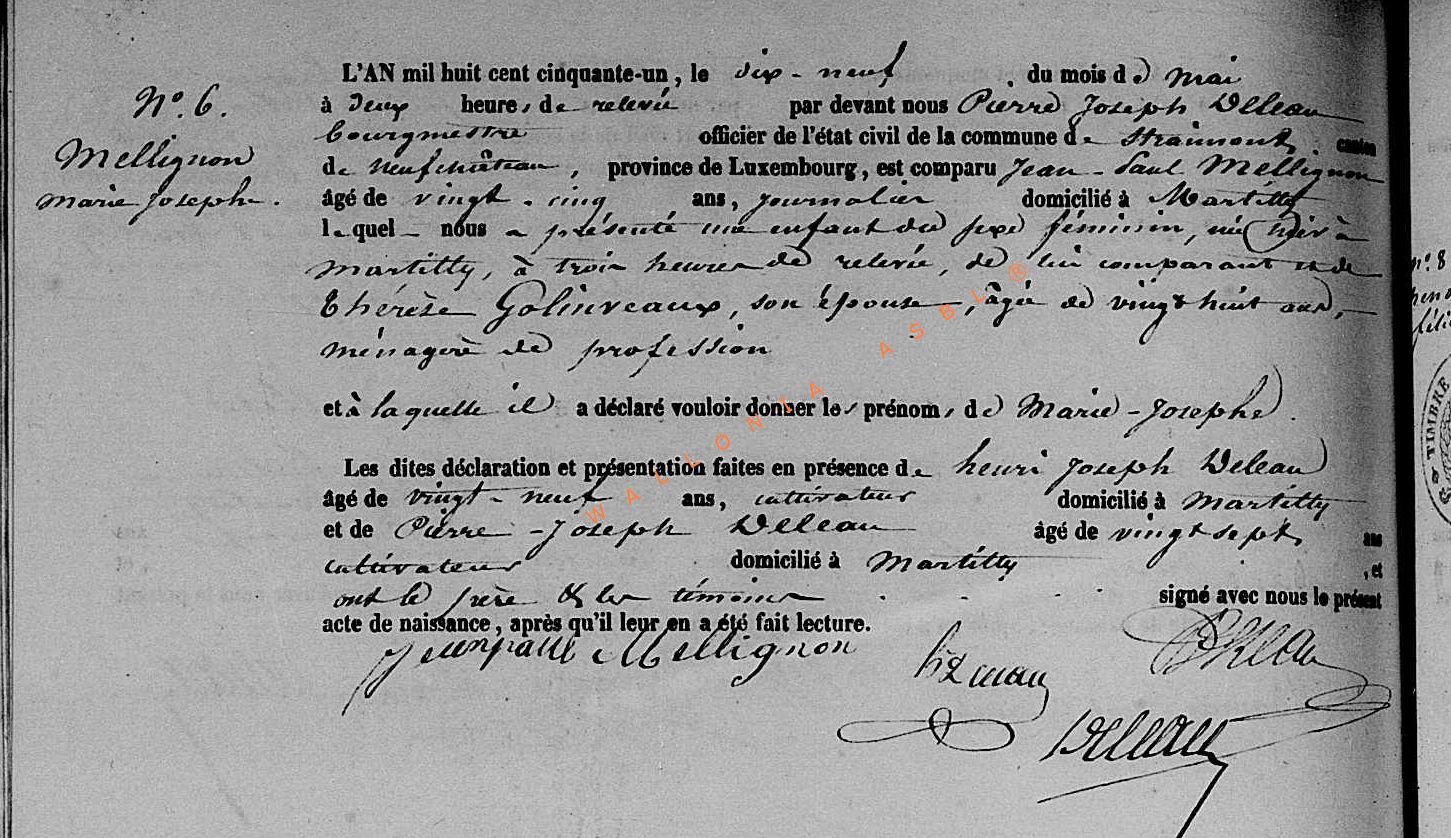 N°. 6.
Mellignon
Marie Josephe.
L'AN mil huit cent cinquante-un, le dix-neuf du mois de mai
à deux heures de relevée par devant nous Pierre Joseph Deleau
bourgmestre officier de l'état civil de la commune de Straimont, canton
de Neufchâteau, province de Luxembourg, est comparu Jean-Paul Mellignon
âgé de vingt-cinq ans, journalier domicilié à Martilly
lequel nous a présenté une enfant du sexe féminin, née hier à
Martilly, à trois heures de relevée, de lui comparant et de
Thérèse Golinveaux, son épouse, âgée de vingt huit ans,
ménagère de profession
et à laquelle il a déclaré vouloir donner les prénoms de Marie-Josephe.
Les dites déclaration et présentation faites en présence de henri Joseph Deleau
âgé de vingt-neuf ans, cultivateur domicilié à Martilly
et de Pierre-Joseph Deleau âgé de vingt sept ans
cultivateur domicilié à Martilly, et
ont le père & les témoins signé avec nous le présent
acte de naissance, après qu'il leur en a été fait lecture.
Jeanpaul Mellignon
Deleau
WALLONIA ASBL ®
n°. 8
TIMBRE